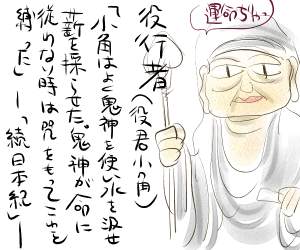 運命ぢゃっ
役行者(役君小角)
「小角はよく鬼神を使い水を汲せ
薪を採らせた。鬼神が命に
従わない時は呪をもってこれを
縛った」―「続日本紀」―